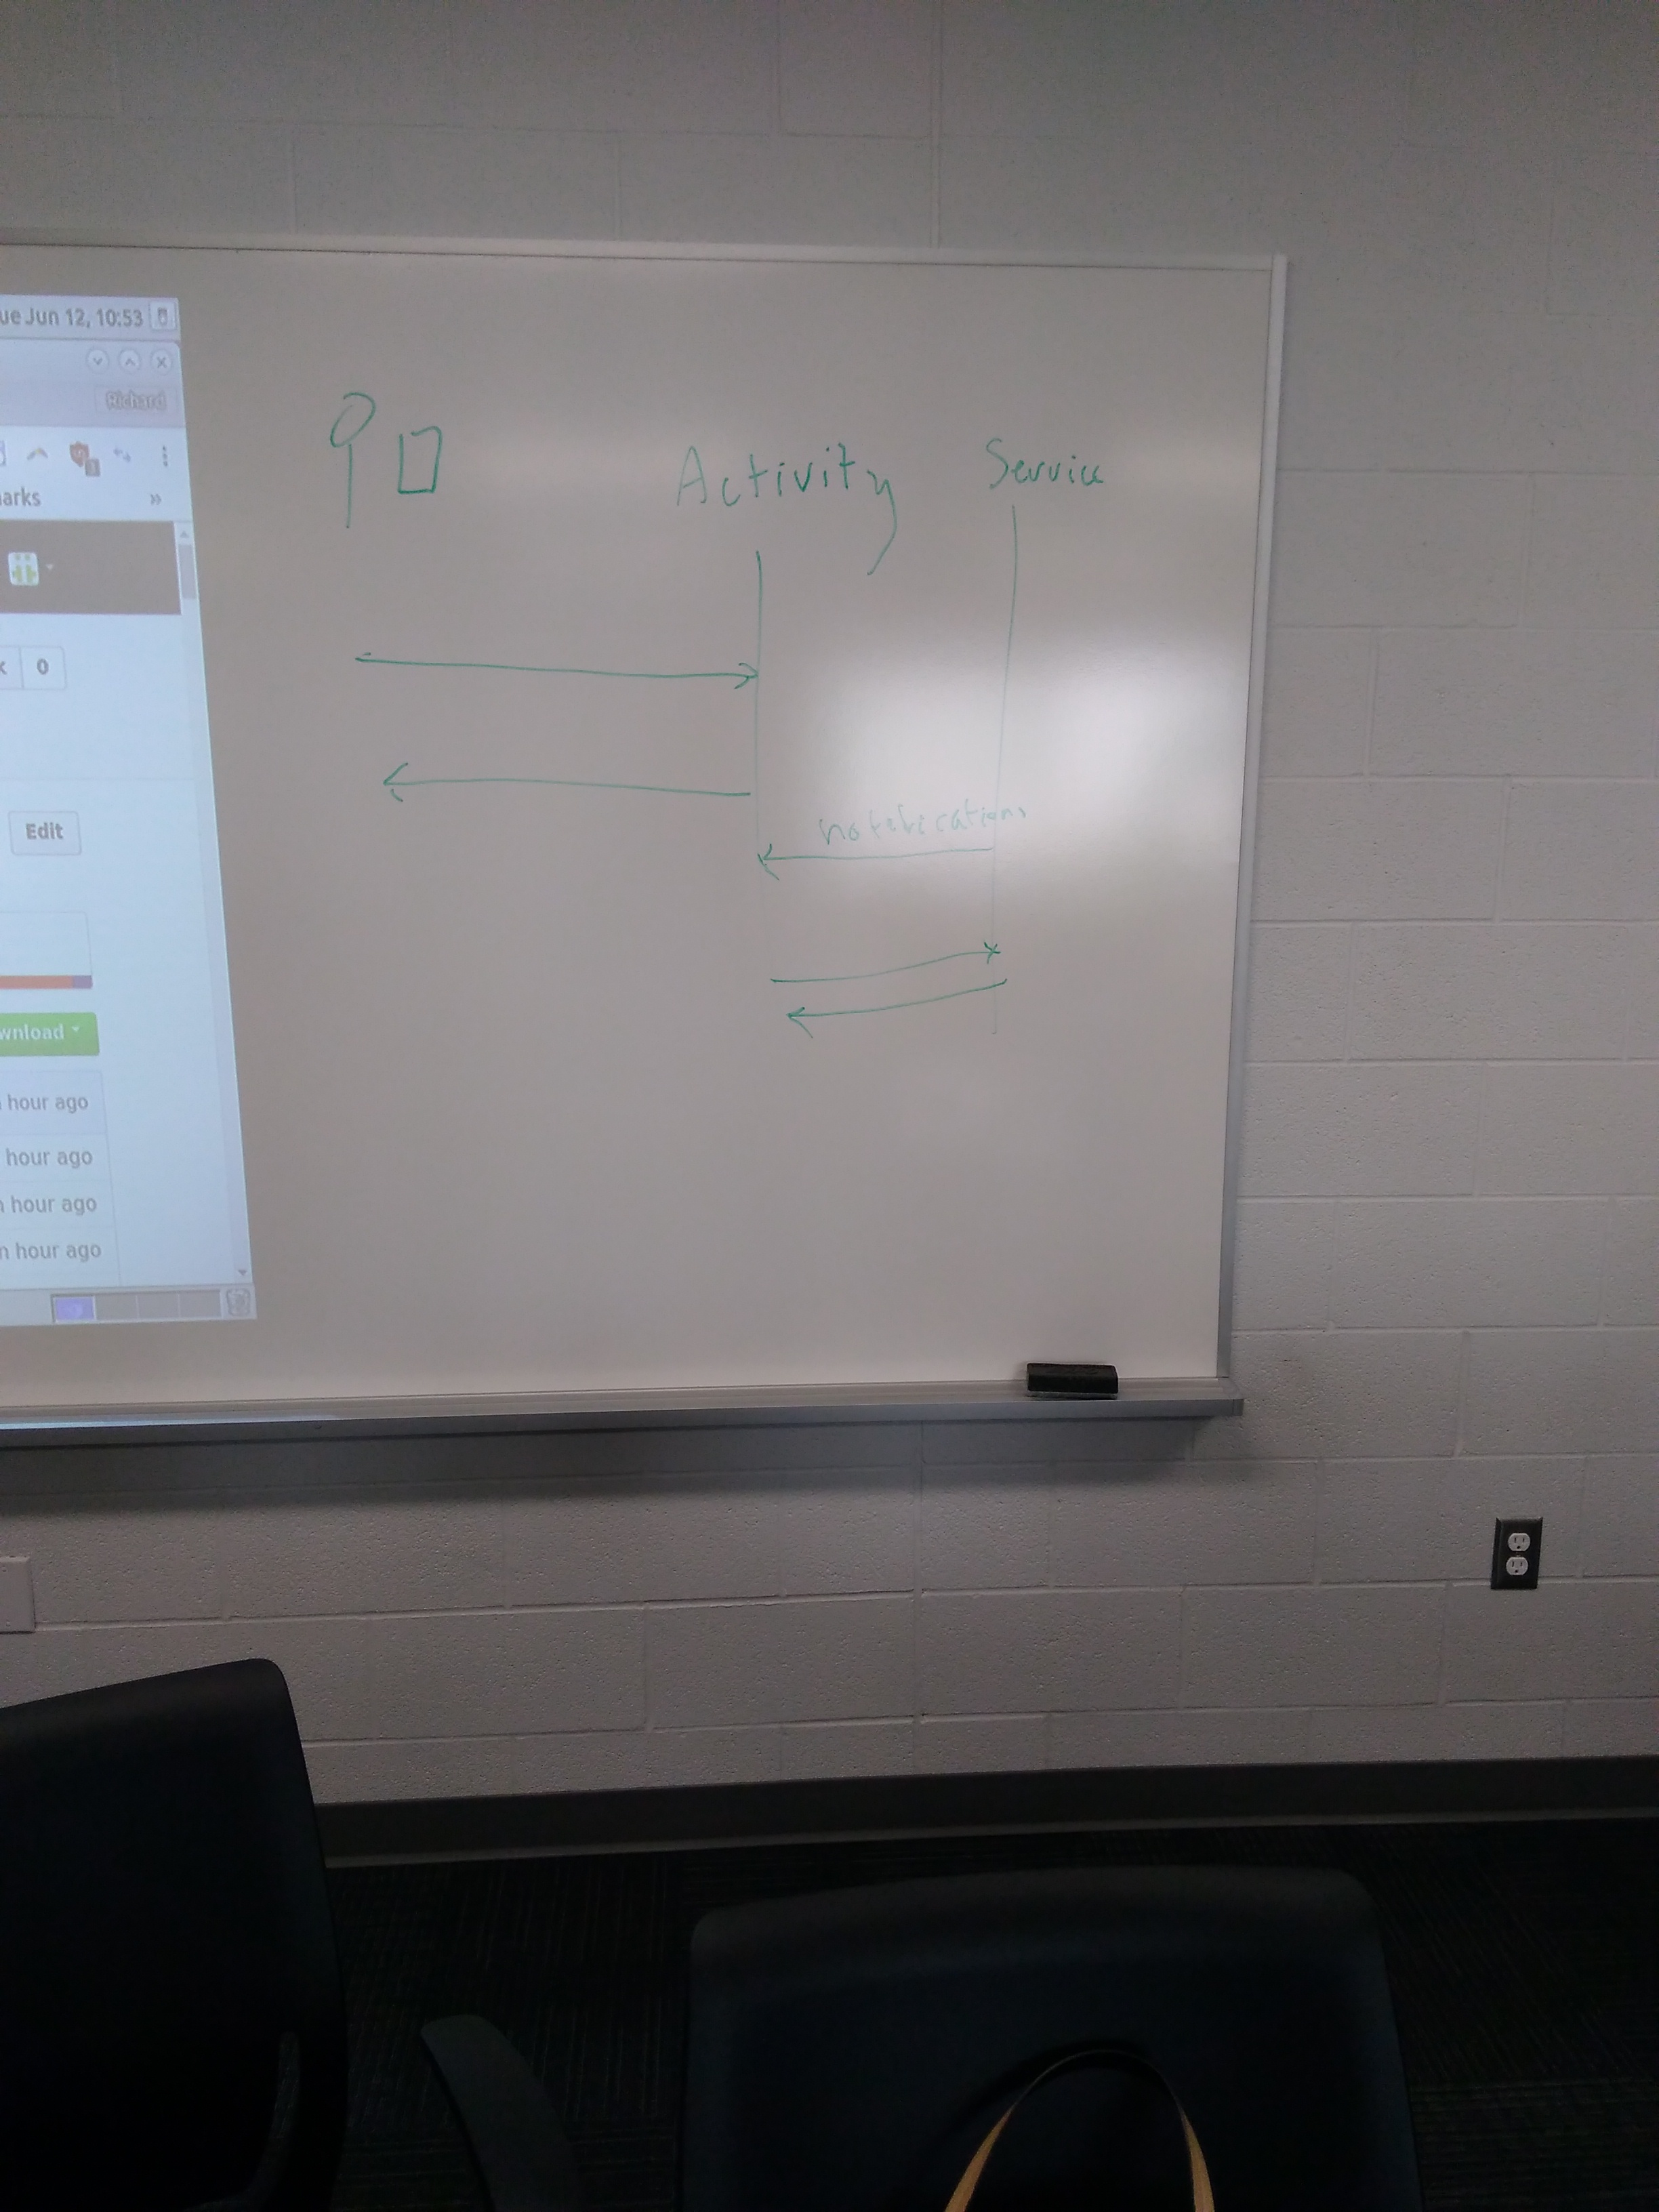 ue Jun 12, 10:53
Richard
arks »
0
Edit
wnload
hour ago
hour ago
hour ago
n hour ago
Activity Service
notifications